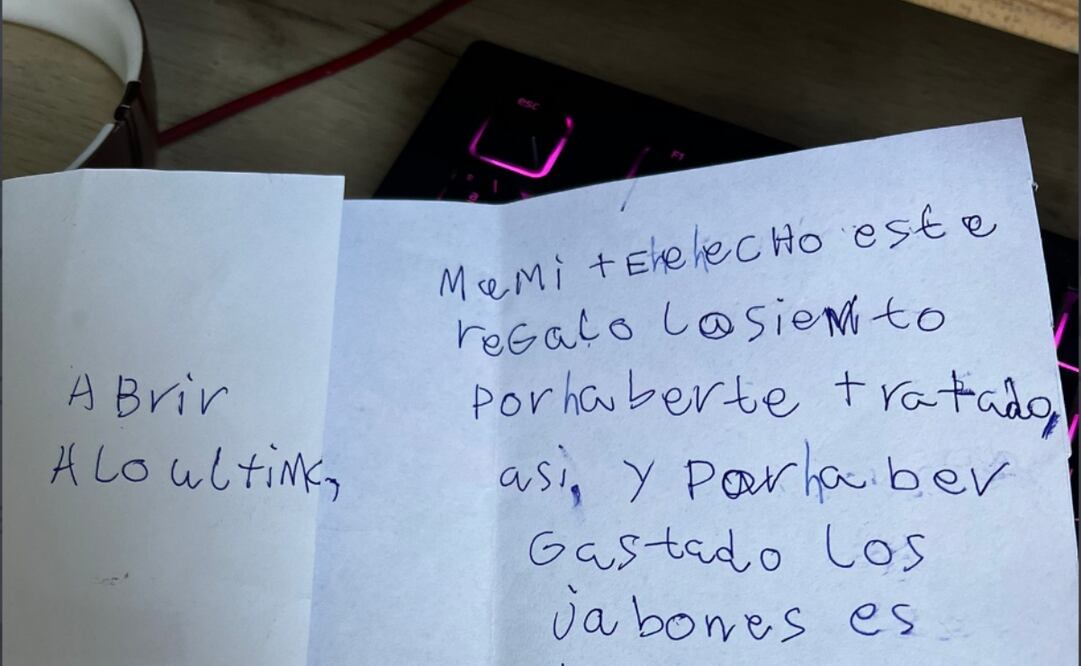 esc
F1
ABrir
ALo ultiMo,
MaMi tEhehecHo este
reGalo losiento
Porhaberte tratado,
asi, y Porhaber
Gastado los
jabones es